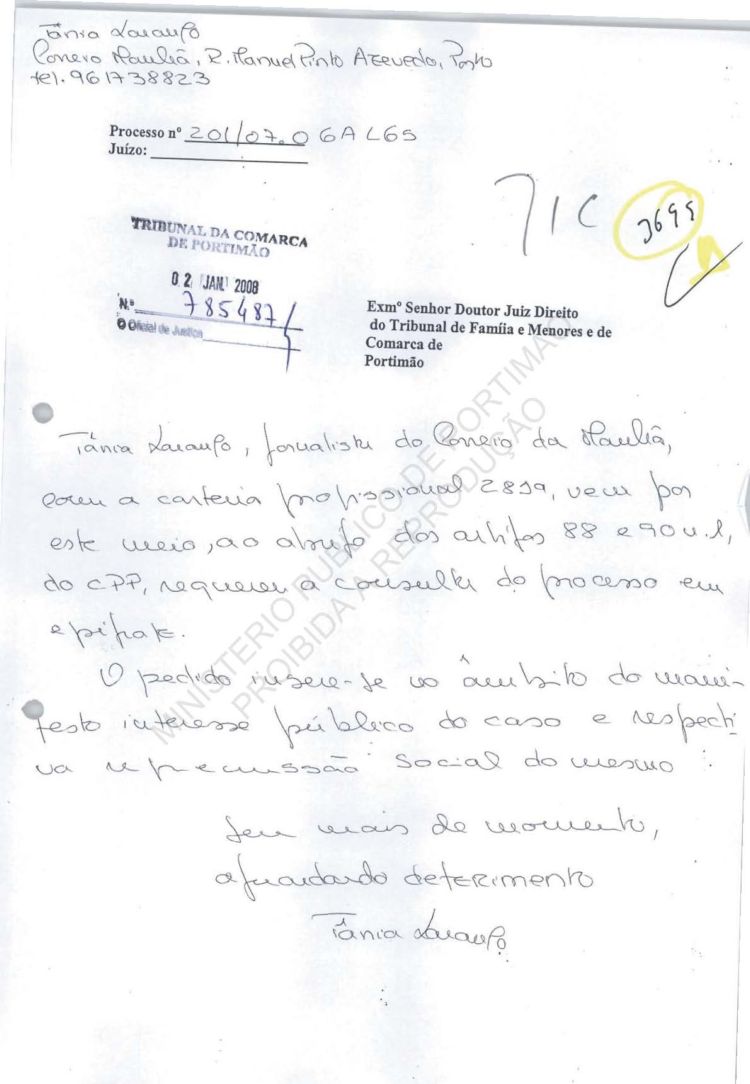 Tânia Laranjo
Correio Manhã, R. Manuel Pinto Azevedo, Porto
tel. 961738823
Processo nº 201/07.0 GALGS
Juízo:
JIC
3695
TRIBUNAL DA COMARCA
DE PORTIMÃO
02 JAN 2008
N.º 785487
O Oficial de Justiça
Exmº Senhor Doutor Juiz Direito
do Tribunal de Famíia e Menores e de
Comarca de
Portimão
Tânia Laranjo, jornalista do Correio da Manhã,
com a carteira profissional 2819, vem por
este meio, ao abrigo dos artigos 88 e 90 n.1,
do CPP, requerer a consulta do processo em
epígrafe.
O pedido insere-se no âmbito do mani-
festo interesse público do caso e respecti
va repercussão social do mesmo.
Sem mais de momento,
aguardando deferimento
Tânia Laranjo
MINISTERIO PUBLICO DE PORTIMAO
PROIBIDA A REPRODUÇÃO